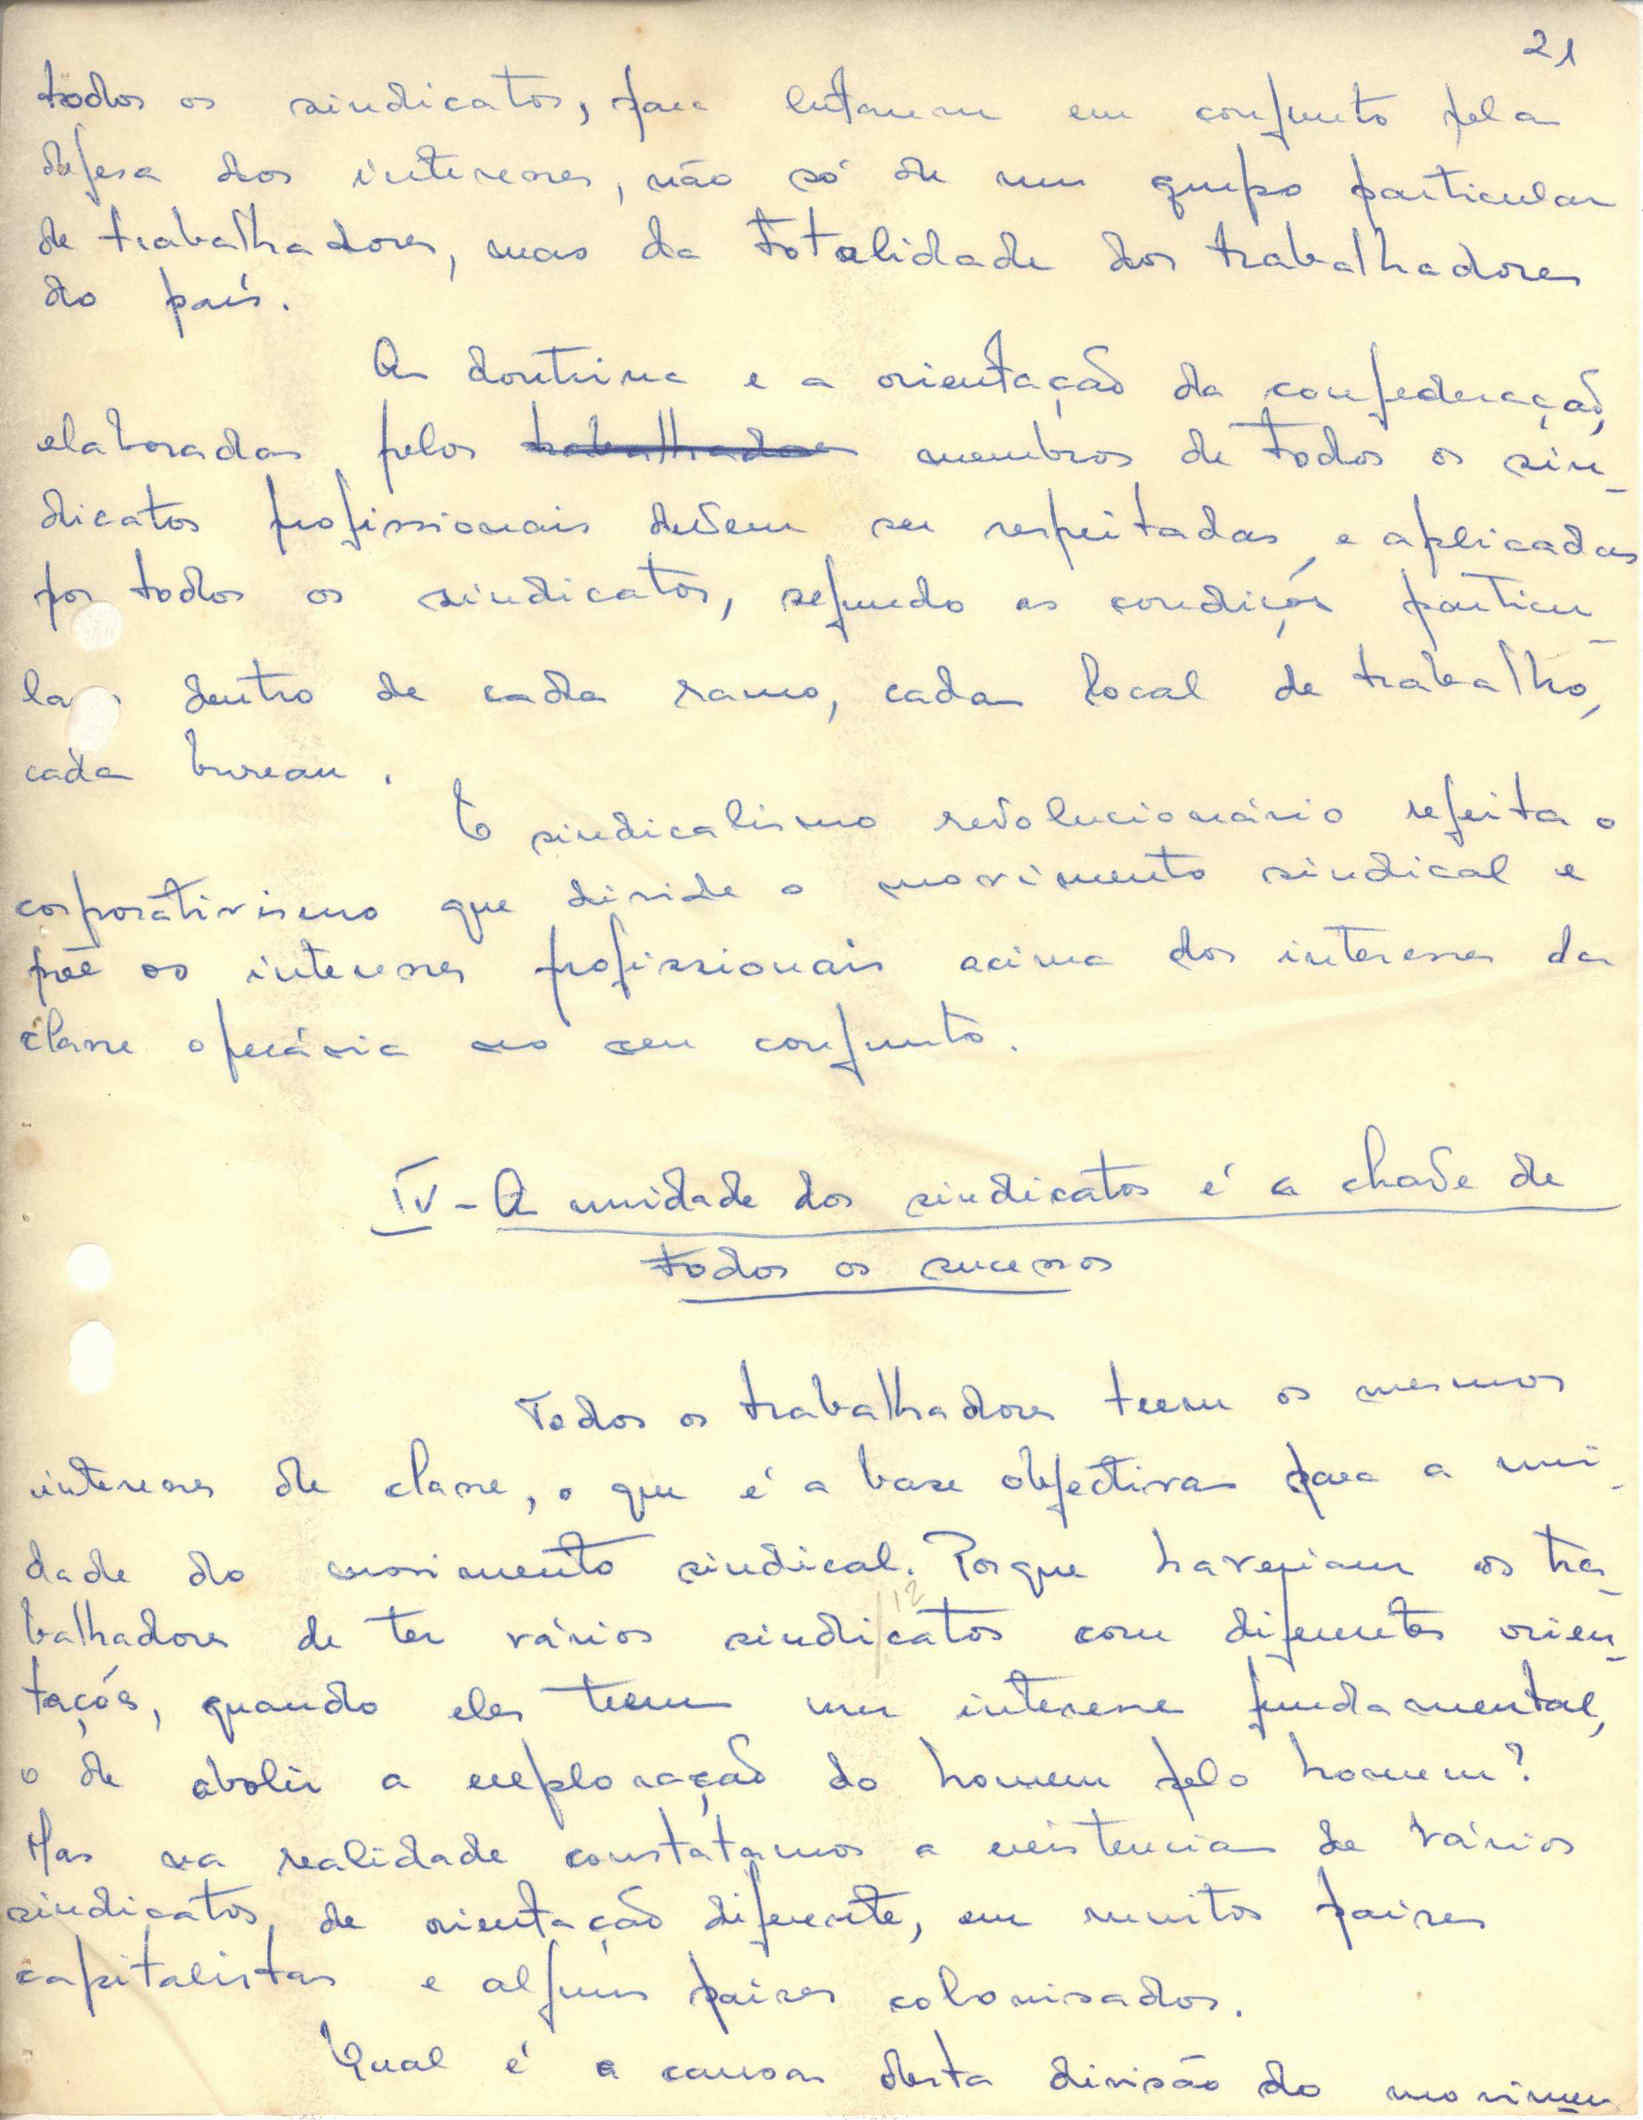 21
todos os sindicatos, para lutarem em conjunto pela
defesa dos interesses, não só de um grupo particular
de trabalhadores, mas da totalidade dos trabalhadores
do país.
A doutrina e a orientação da confederação,
elaboradas pelos trabalhadores membros de todos os sin-
dicatos profissionais devem ser respeitadas e aplicadas
por todos os sindicatos, segundo as condições particu-
la dentro de cada ramo, cada local de trabalho,
cada bureau.
O sindicalismo revolucionário rejeita o
corporativismo que divide o movimento sindical e
põe os interesses profissionais acima dos interesses da
classe operária no seu conjunto.
IV - A unidade dos sindicatos é a chave de
todos os sucessos
Todos os trabalhadores teem os mesmos
interesses de classe, o que é a base objectiva para a uni-
dade do movimento sindical. Porque haveriam os tra-
12
balhadores de ter vários sindicatos com diferentes orien-
tações, quando eles teem um interesse fundamental,
o de abolir a exploração do homem pelo homem?
Mas na realidade constatamos a existencia de vários
sindicatos, de orientação diferente, em muitos paises
capitalistas e alguns paises colonisados.
Qual é a causa desta divisão do movimen